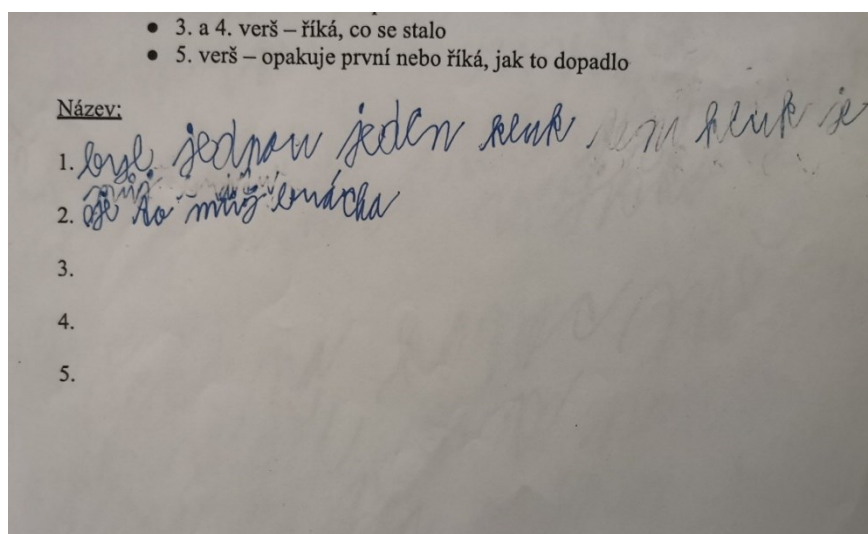 • 3. a 4. verš – říká, co se stalo
• 5. verš – opakuje první nebo říká, jak to dopadlo
Název:
1. byl jednou jeden kluk ten kluk je
můj
2. je to můj brácha
3.
4.
5.